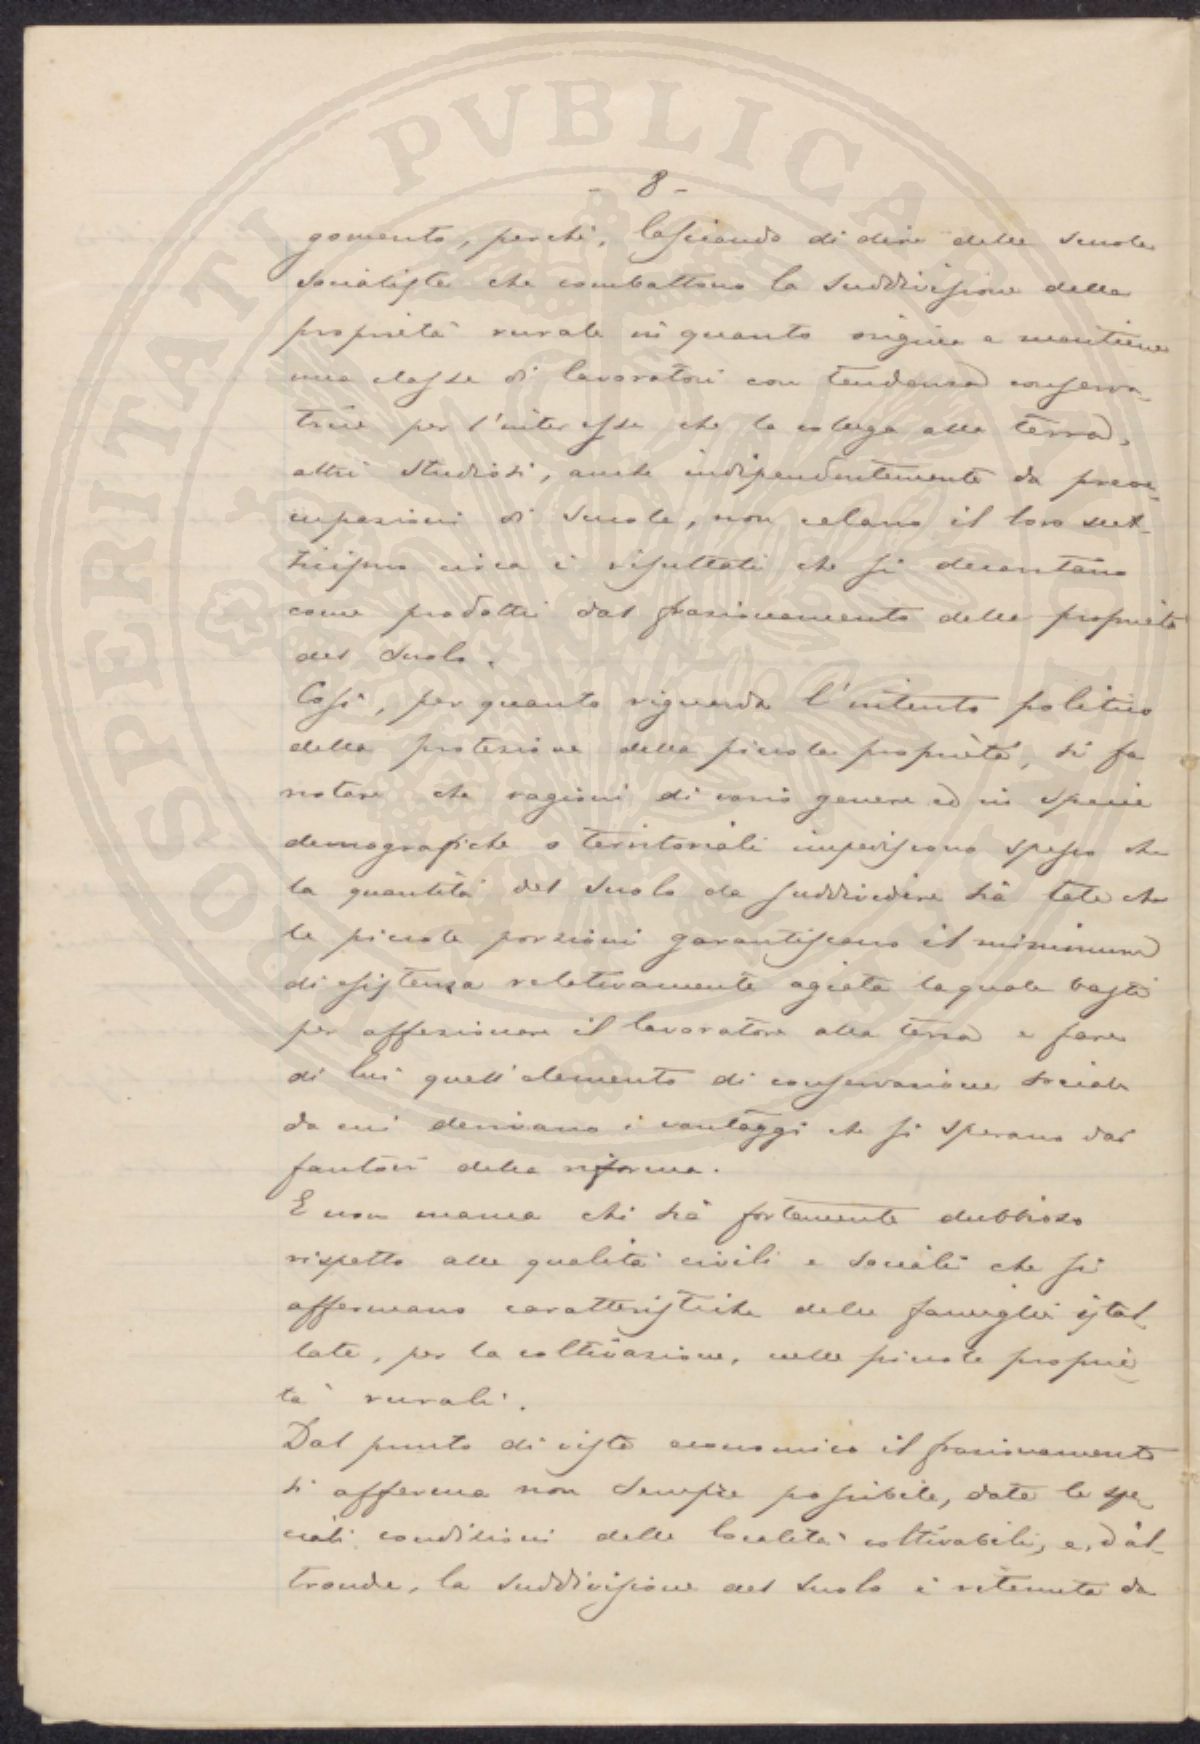 - 8 -
gomento, perchè, lasciando di dire delle scuole
socialiste che combattono la suddivisione della
proprietà rurale in quanto origina e mantiene
una classe di lavoratori con tendenza conserva-
trice per l'interesse che la collega alla terra,
altri studiosi, anche indipendentemente da preoc-
cupazioni di scuole, non celano il loro scet-
ticismo circa i risultati che si decantano
come prodotti dal frazionamento della proprietà
del suolo.
Così, per quanto riguarda l'intento politico
della protezione della piccola proprietà, si fa
notare che ragioni di vario genere ed in specie
demografiche o territoriali impediscono spesso che
la quantità del suolo da suddividere sia tale che
le piccole porzioni garantiscano il minimum
di esistenza relativamente agiata la quale basti
per affezionare il lavoratore alla terra e fare
di lui quell'elemento di conservazione sociale
da cui derivano i vantaggi che si sperano dai
fautori della riforma.
E non manca chi sia fortemente dubbioso
rispetto alle qualità civili e sociali che si
affermano caratteristiche delle famiglie istal-
late, per la coltivazione, nelle piccole proprie-
tà rurali.
Dal punto di vista economico il frazionamento
si afferma non sempre possibile, date le spe-
ciali condizioni delle località coltivabili, e, d'al-
tronde, la suddivisione del suolo è ritenuta da
PROSPERITATI PVBLICAE